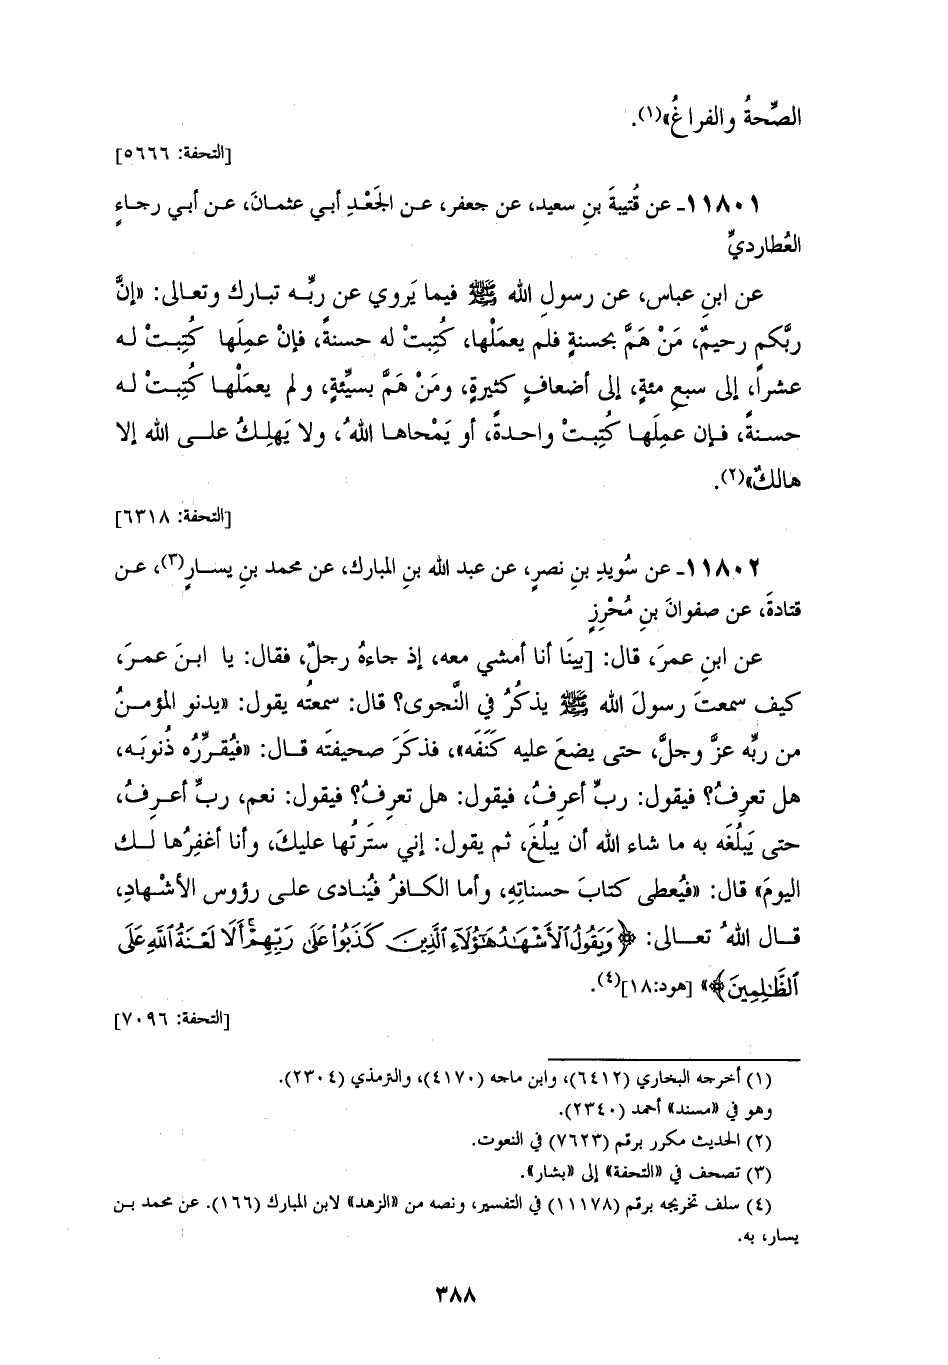 الصِّحةُ والفراغُ»(١).
[التحفة: ٥٦٦٦]
١١٨٠١ـ عن قُتيبةَ بنِ سعيد، عن جعفر، عـن الجَعْدِ أبي عثمانَ، عـن أبي رجـاءٍ
العُطارديِّ
عن ابنِ عباس، عن رسولِ الله ﷺ فيما يَروي عن ربِّـه تبـارك وتعـالى: «إنَّ
ربَّكم رحيمٌ، مَنْ هَمَّ بحسنةٍ فلم يعمَلْها، كُتِبتْ له حسنةً، فإنْ عمِلَها كُتِبـتْ لـه
عشراً، إلى سبعِ مئةٍ، إلى أضعافٍ كثيرةٍ، ومَنْ هَمَّ بسيِّئةٍ، ولم يعمَلْهـا كُتِبـتْ لـه
حسـنةً، فـإن عمِلَهـا كُتِبـتْ واحـدةً، أو يَمْحاهـا اللهُ، ولا يَهلِـكُ علـى الله إلا
هالكٌ»(٢).
[التحفة: ٦٣١٨]
١١٨٠٢ـ عن سُويدِ بنِ نصرٍ، عن عبد الله بنِ المبارك، عن محمد بنِ يسـارٍ(٣)، عـن
قتادةَ، عن صفوانَ بنِ مُحْرِزٍ
عن ابنِ عمرَ، قال: [بينَا أنا أمشي معه، إذ جاءهُ رجلٌ، فقال: يا ابـنَ عمـرَ،
كيف سمعتَ رسولَ الله ﷺ يذكُرُ في النَّجوى؟ قال: سمعتُه يقول: «يدنو المؤمـنُ
من ربِّه عزَّ وجلَّ، حتى يضعَ عليه كَنَفَه»، فذكَرَ صحيفتَه قـال: «فيُقـرِّرُه ذُنوبَـه،
هل تعرِفُ؟ فيقول: ربِّ أعرِفُ، فيقول: هل تعرِفُ؟ فيقول: نعم، ربِّ أعـرِفُ،
حتى يَبلُغَه به ما شاء الله أن يبلُغَ، ثم يقول: إني ستَرتُها عليكَ، وأنا أغفِرُها لـك
اليومَ» قال: «فيُعطى كتابَ حسناتِهِ، وأما الكـافرُ فيُنادى علـى رؤوس الأشْهادِ،
قـال اللهُ تعـالى: ﴿وَيَقُولُ ٱلْأَشْهَـٰدُ هَـٰٓؤُلَآءِ ٱلَّذِينَ كَذَبُوا۟ عَلَىٰ رَبِّهِمْ ۚ أَلَا لَعْنَةُ ٱللَّهِ عَلَى
ٱلظَّـٰلِمِينَ﴾» [هود:١٨](٤).
[التحفة: ٧٠٩٦]
(١) أخرجه البخاري (٦٤١٢)، وابن ماجه (٤١٧٠)، والترمذي (٢٣٠٤).
وهو في «مسند» أحمد (٢٣٤٠).
(٢) الحديث مكرر برقم (٧٦٢٣) في النعوت.
(٣) تصحف في «التحفة» إلى «بشار».
(٤) سلف تخريجه برقم (١١١٧٨) في التفسير، ونصه من «الزهد» لابن المبارك (١٦٦). عن محمد بـن
يسار، به.
٣٨٨